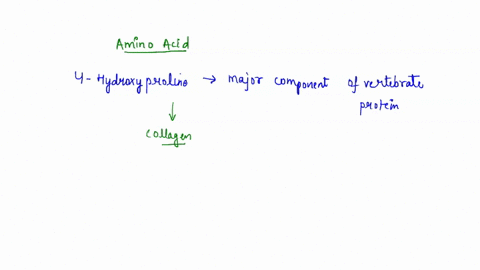 Amino Acid
4-Hydroxyproline → major component of vertebrate
protein
↓
collagen